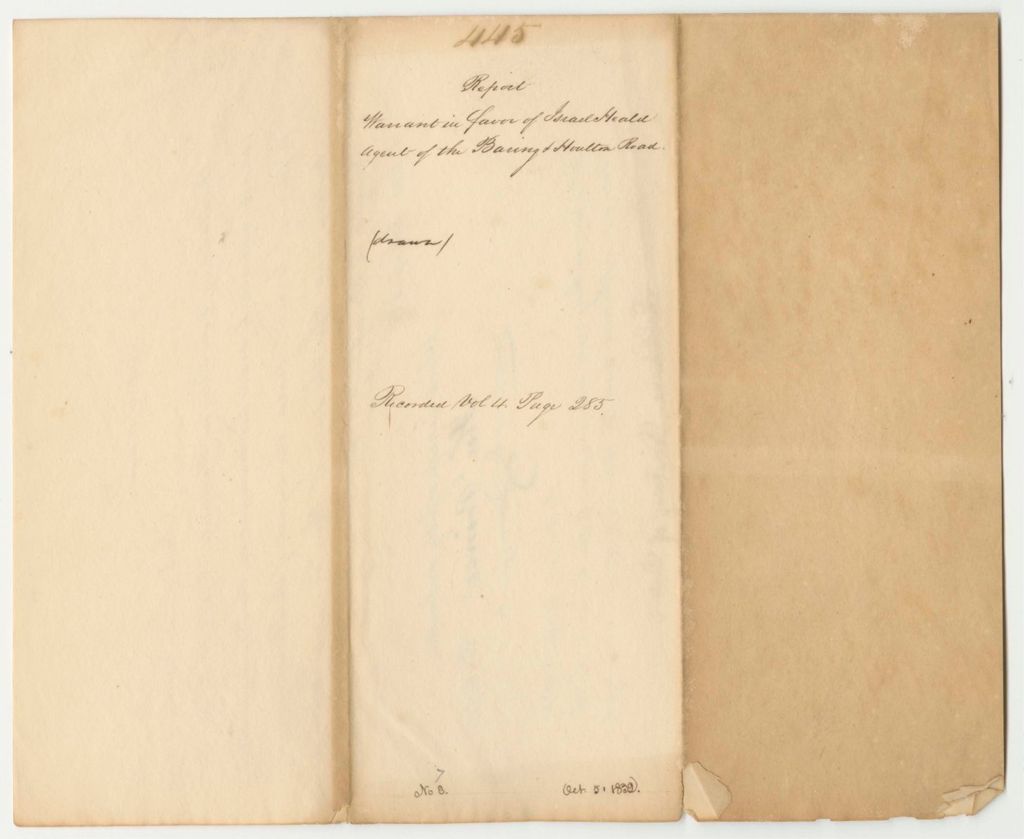 445
Report
Warrant in favor of Israel Heald
Agent of the Baring & Houlton Road.
(drawn)
Recorded Vol 4. Page 285.
7
No 8.
Oct. 5, 1832.